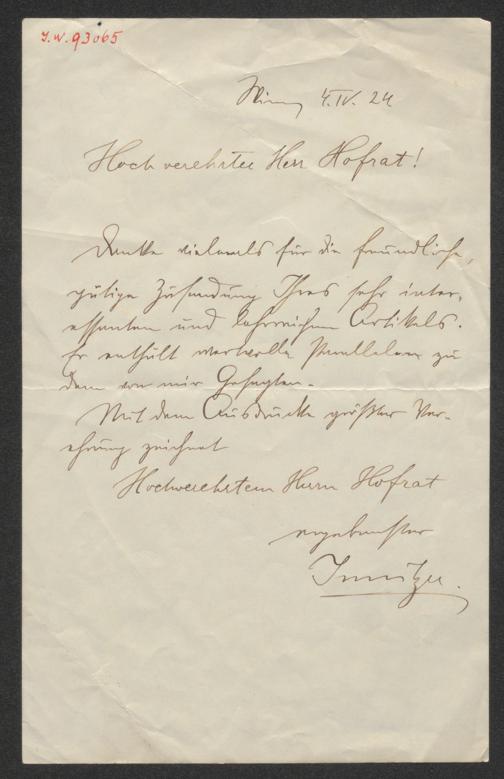 I.N. 93065
Wien, 4.IV. 24
Hochverehrter Herr Hofrat!
Danke vielmals für die freundliche,
gütige Zusendung Ihres sehr inter-
essanten und lehrreichen Artikels.
Er enthält wertvolle Parallelen zu
dem von mir Gesagten.
Mit dem Ausdrucke größter Ver-
ehrung zeichnet
Hochverehrtem Herrn Hofrat
ergebenster
Innitzer.